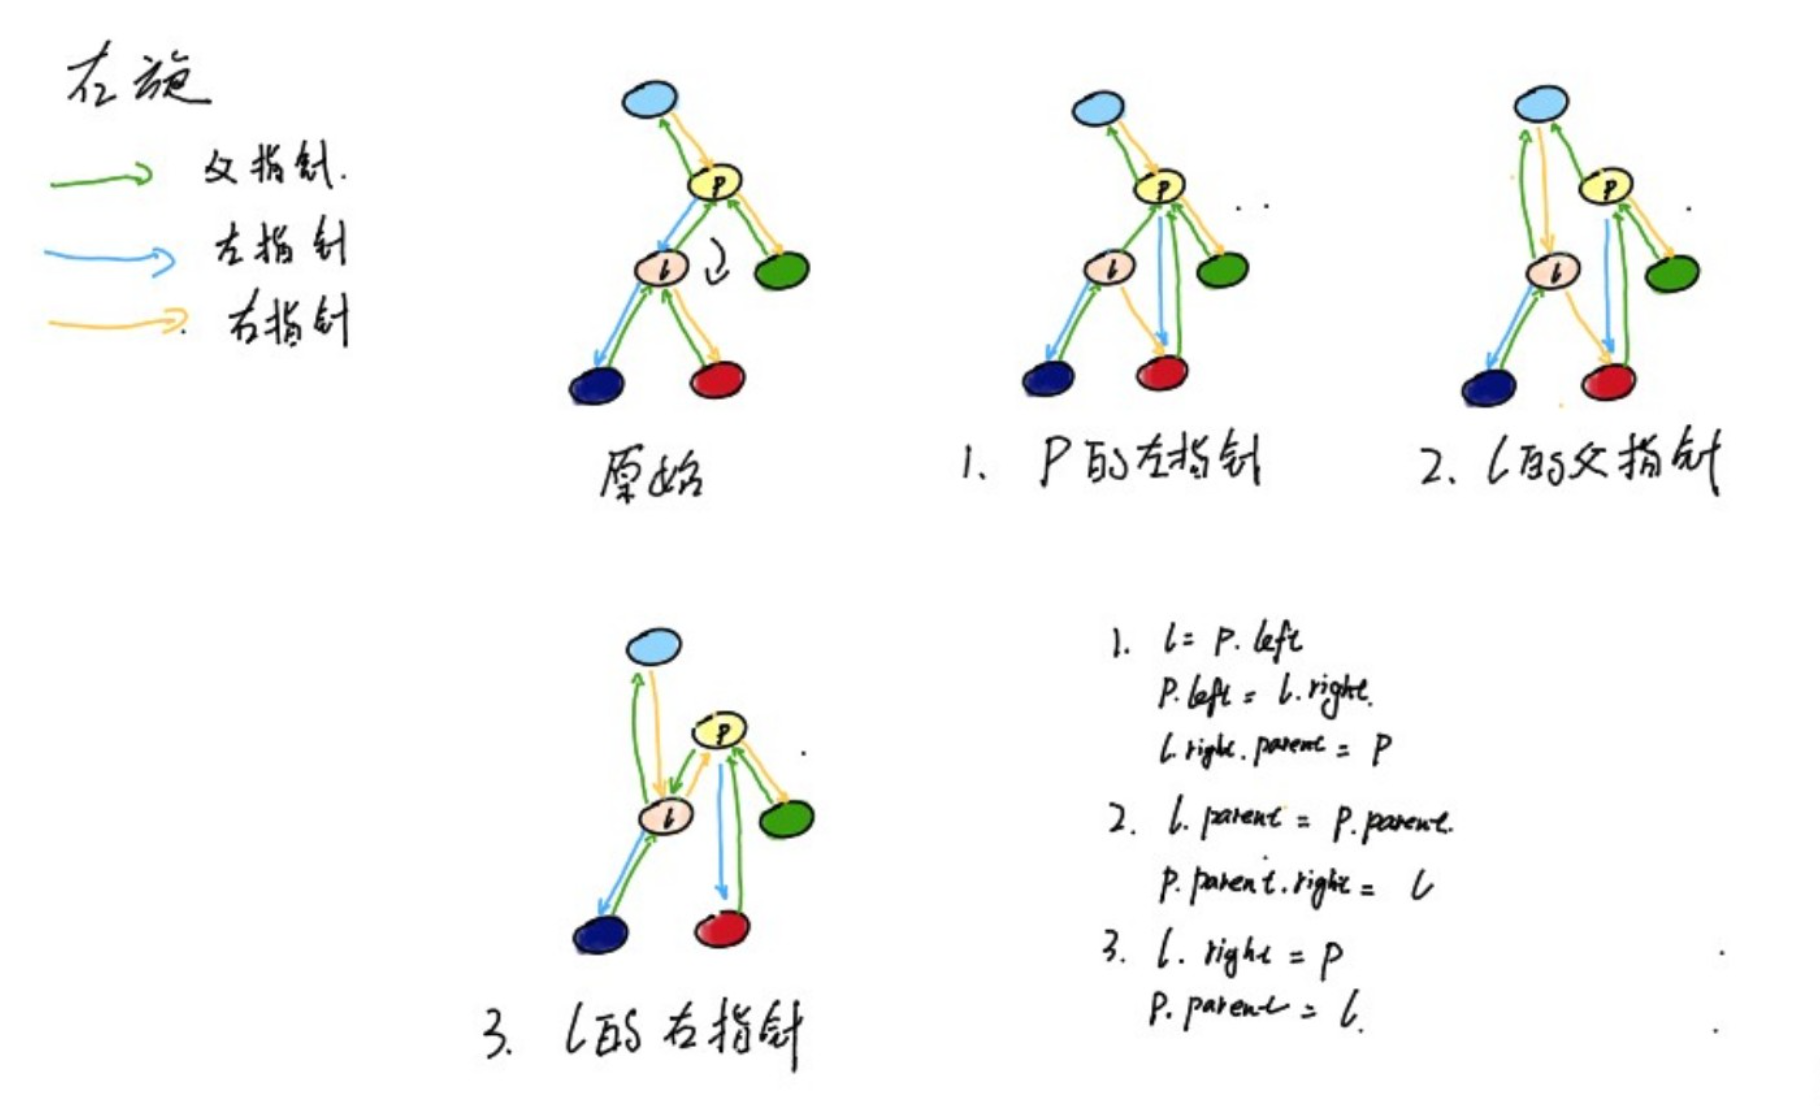 右旋
父指针.
左指针
右指针
P
l
原始
P
l
1. P的左指针
P
l
2. l的父指针
P
l
3. l的右指针
1. l = P.left
P.left = l.right.
l.right.parent = P
2. l.parent = P.parent.
P.parent.right = l
3. l.right = P
P.parent = l.